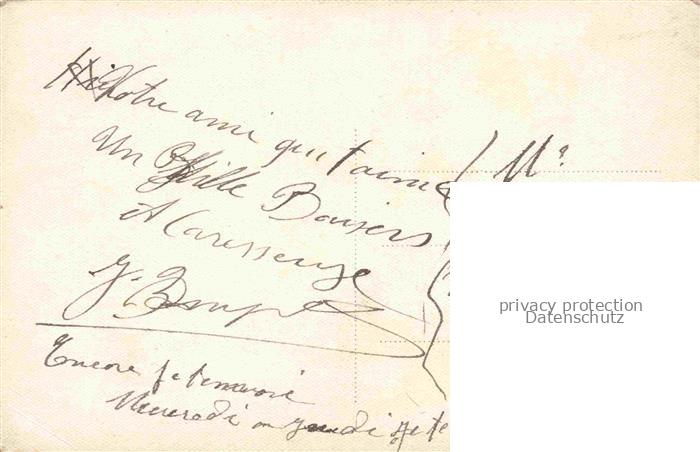 Notre ami qui t'aime
Un Mille Baisers
et Caresseuse
J.
Encore je t'envoi
Mecredi ou jeudi je te
M.
privacy protection
Datenschutz